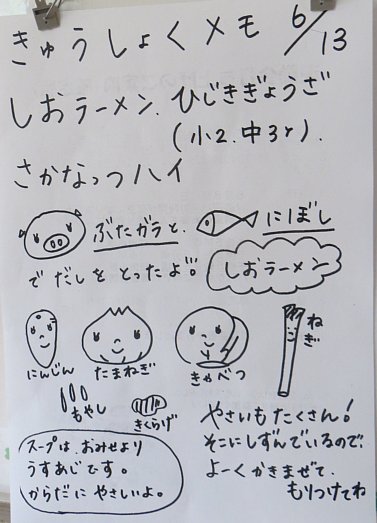 きゅうしょくメモ 6/13
しおラーメン. ひじきぎょうざ
(小2. 中3ヶ).
さかなっつハイ
ぶたガラと、 にぼし
で だしを とったよ。
しおラーメン
にんじん たまねぎ きゃべつ ねぎ
もやし きくらげ
やさいも たくさん!
そこに しずんでいるので、
よーく かきまぜて、
もりつけてね
スープは、おみせより
うすあじです。
からだに やさしいよ。